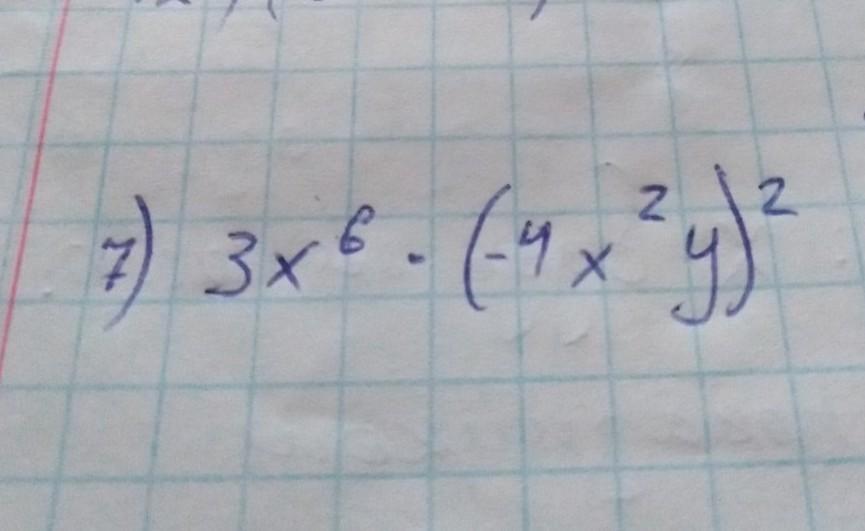 7) 3x⁶ · (-4x²y)²